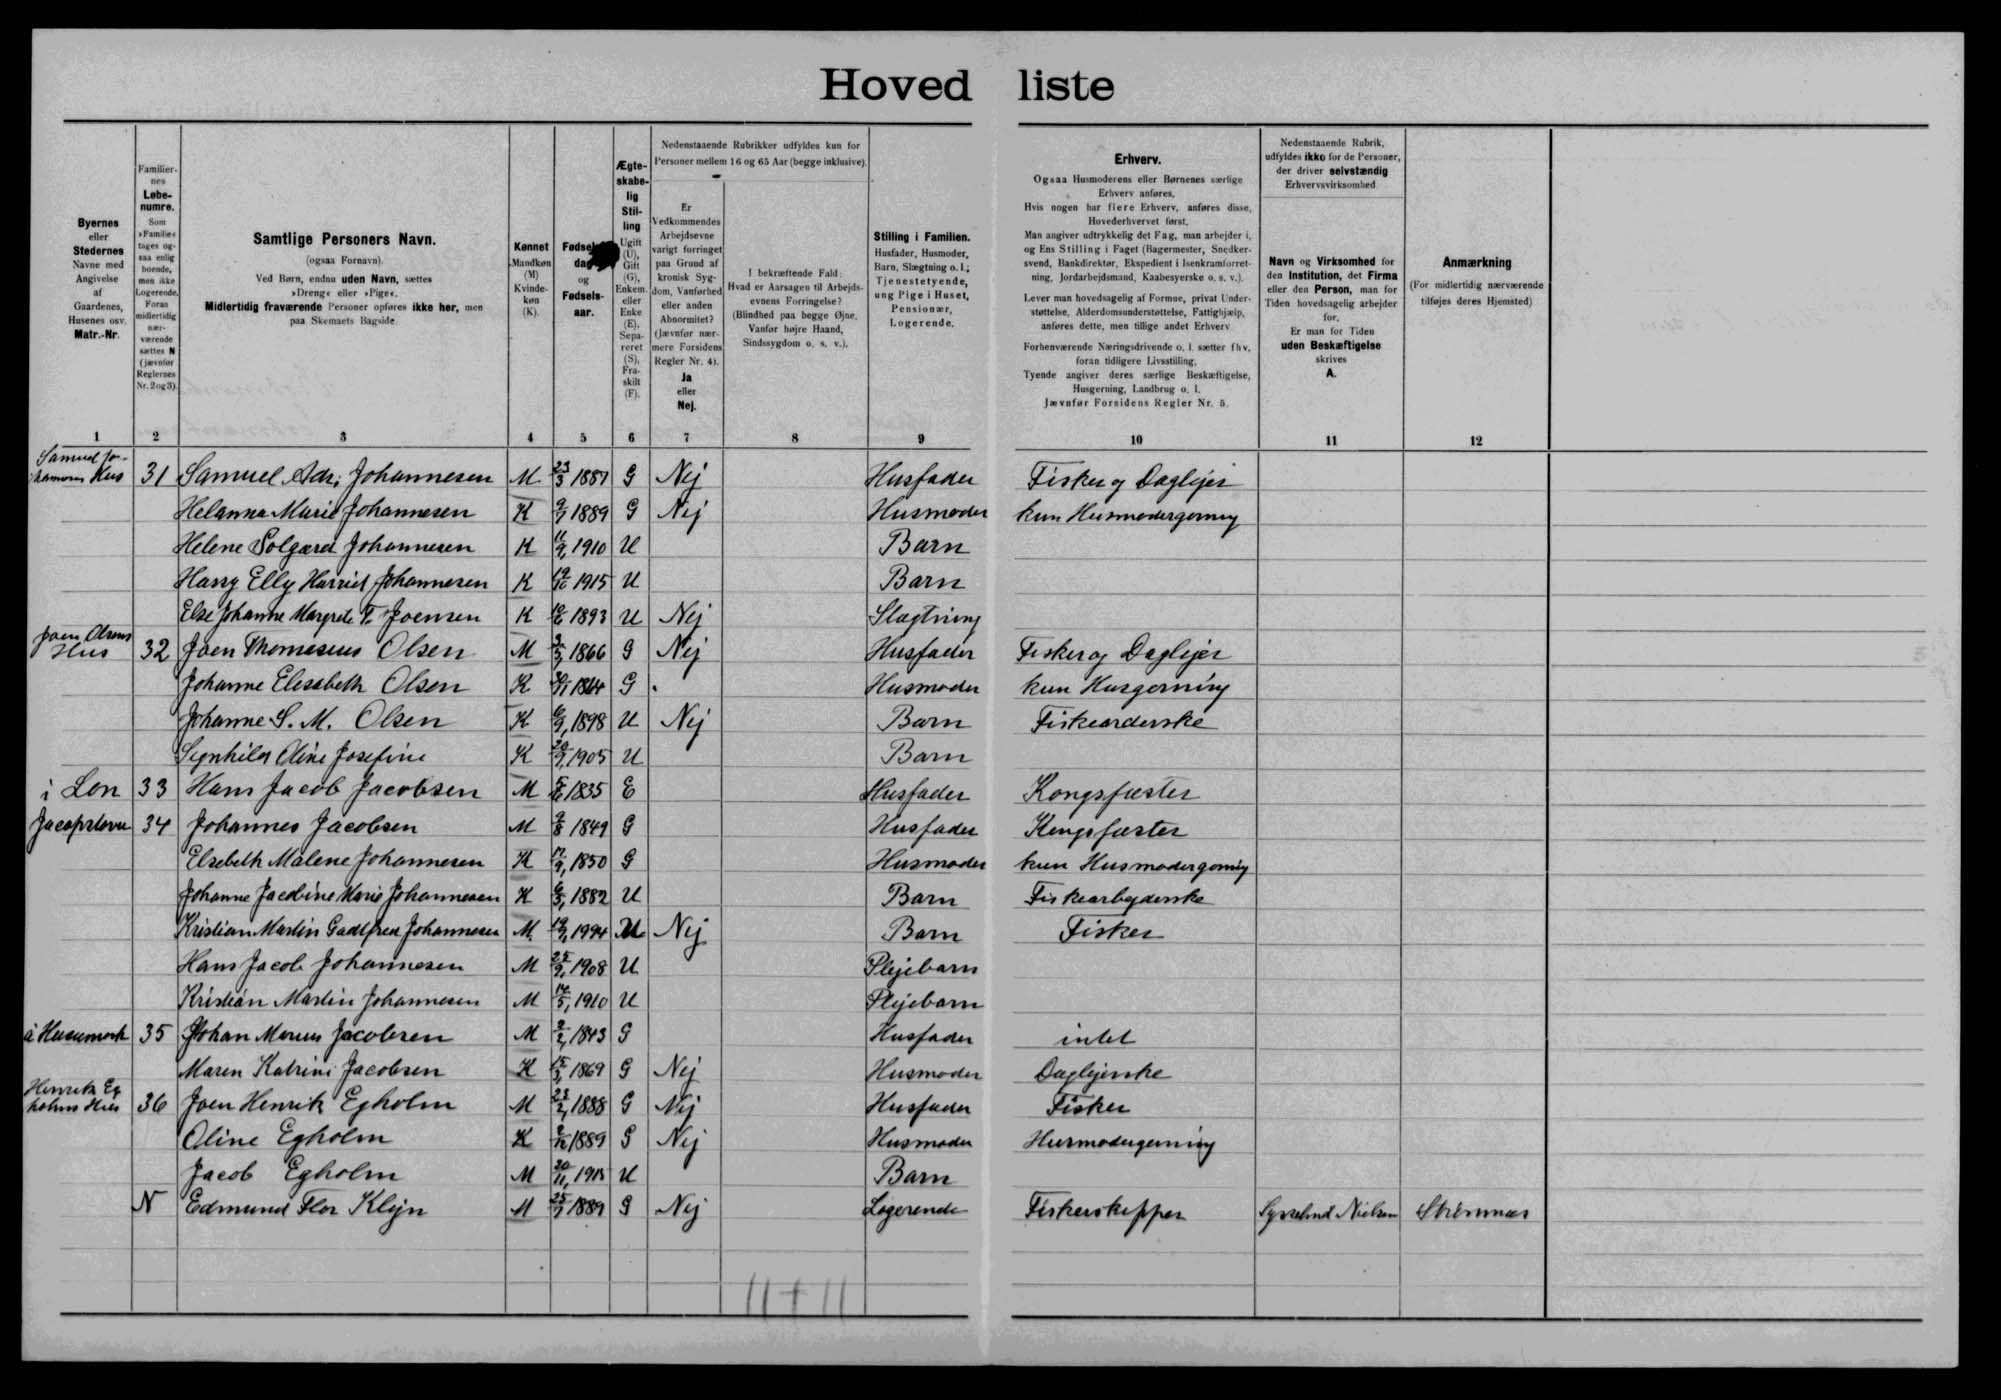 Hovedliste
Byernes
eller
Stedernes
Navne med
Angivelse
af
Gaardenes,
Husenes osv.
Matr.-Nr.
Familier-
nes
Løbe-
numre.
Som
»Familie«
tages og-
saa enlig
boende,
men ikke
Logerende.
Foran
midlertidig
nær-
værende
sættes N
(jævnfør
Reglernes
Nr. 2 og 3).
Samtlige Personers Navn.
(ogsaa Fornavn).
Ved Børn, endnu uden Navn, sættes
»Dreng« eller »Pige«.
Midlertidig fraværende Personer opføres ikke her, men
paa Skemaets Bagside.
Kønnet
Mandkøn
(M)
Kvinde-
køn
(K).
Fødsels-
dag
og
Fødsels-
aar.
Ægte-
skabe-
lig
Stil-
ling
Ugift
(U),
Gift
(G),
Enkem.
eller
Enke
(E),
Sepa-
reret
(S),
Fra-
skilt
(F).
Nedenstaaende Rubrikker udfyldes kun for
Personer mellem 16 og 65 Aar (begge inklusive).
Er
Vedkommendes
Arbejdsevne
varigt forringet
paa Grund af
kronisk Syg-
dom, Vanførhed
eller anden
Abnormitet?
(Jævnfør nær-
mere Forsidens
Regler Nr. 4).
Ja
eller
Nej.
I bekræftende Fald:
Hvad er Aarsagen til Arbejds-
evnens Forringelse?
(Blindhed paa begge Øjne,
Vanfør højre Haand,
Sindssygdom o. s. v.).
Stilling i Familien.
Husfader, Husmoder,
Barn, Slægtning o. l.;
Tjenestetyende,
ung Pige i Huset,
Pensionær,
Logerende.
Erhverv.
Ogsaa Husmoderens eller Børnenes særlige
Erhverv anføres.
Hvis nogen har flere Erhverv, anføres disse,
Hovederhvervet først.
Man angiver udtrykkelig det Fag, man arbejder i,
og Ens Stilling i Faget (Bagermester, Snedker-
svend, Bankdirektør, Ekspedient i Isenkramforret-
ning, Jordarbejdsmand, Kaabesyerske o. s. v.).
Lever man hovedsagelig af Formue, privat Under-
støttelse, Alderdomsunderstøttelse, Fattighjælp,
anføres dette, men tillige andet Erhverv
Forhenværende Næringsdrivende o. l. sætter fhv.
foran tidligere Livsstilling.
Tyende angiver deres særlige Beskæftigelse,
Husgerning, Landbrug o. l.
Jævnfør Forsidens Regler Nr. 5.
Nedenstaaende Rubrik,
udfyldes ikke for de Personer,
der driver selvstændig
Erhvervsvirksomhed
Navn og Virksomhed for
den Institution, det Firma
eller den Person, man for
Tiden hovedsagelig arbejder
for.
Er man for Tiden
uden Beskæftigelse
skrives
A.
Anmærkning
(For midlertidig nærværende
tilføjes deres Hjemsted)
1 2 3 4 5 6 7 8 9 10 11 12
Samuel Jo-
hannesens Hus 31 Samuel Adr. Johannesen M. 23/3 1887 G Nej Husfader Fisker og Daglejer
Helanna Marie Johannesen K 1889 G Nej Husmoder kun Husmodergerning
Helene Solgærd Johannesen K 11/9, 1910 U Barn
Harry Elly Harriet Johannesen K 1915 U Barn
Else Johanne Margrete F. Joensen K 1893 U Nej Slægtning
Joen Olsens
Hus 32 Joen Thomesius Olsen M 1866 G Nej Husfader Fisker og Daglejer
Johanne Elisabeth Olsen K 1864 G . Husmoder kun Husgerning
Johanne S. M. Olsen K 6/9, 1898 U Nej Barn Fiskearderske
Signhild Oline Josefine K 1905 U Barn
i Lon 33 Hans Jacob Jacobsen M 1835 E Husfader Kongsfæster
34 Johannes Jacobsen M 9/8 1849 G Husfader Kongsfæster
Elsebeth Malene Johannesen K 17/9, 1850 G Husmoder kun Husmodergerning
Johanne Jacobine Marie Johannesen K 6/3, 1882 U Barn Fiskearbejderske
Kristian Martin Godtfred Johannesen M. 1994 U Nej Barn Fisker
Hans Jacob Johannesen M 25/9, 1908 U Plejebarn
Kristian Martin Johannesen M 14/5, 1910 U Plejebarn
á Husumørk 35 Johan Marius Jacobsen M 2/2, 1843 G Husfader intet
Maren Katrine Jacobsen K 15/3, 1869 G Nej Husmoder Daglejerske
Henrik Eg
holms Hus 36 Joen Henrik Egholm M 23/2, 1888 G Nej Husfader Fisker
Oline Egholm K 1889 G Nej Husmoder Husmodergerning
Jacob Egholm M 30/11, 1915 U Barn
N Edmund Flor Klejn M 1889 G Nej Logerende Fiskerskipper Nielsen Strømnæs
11+11